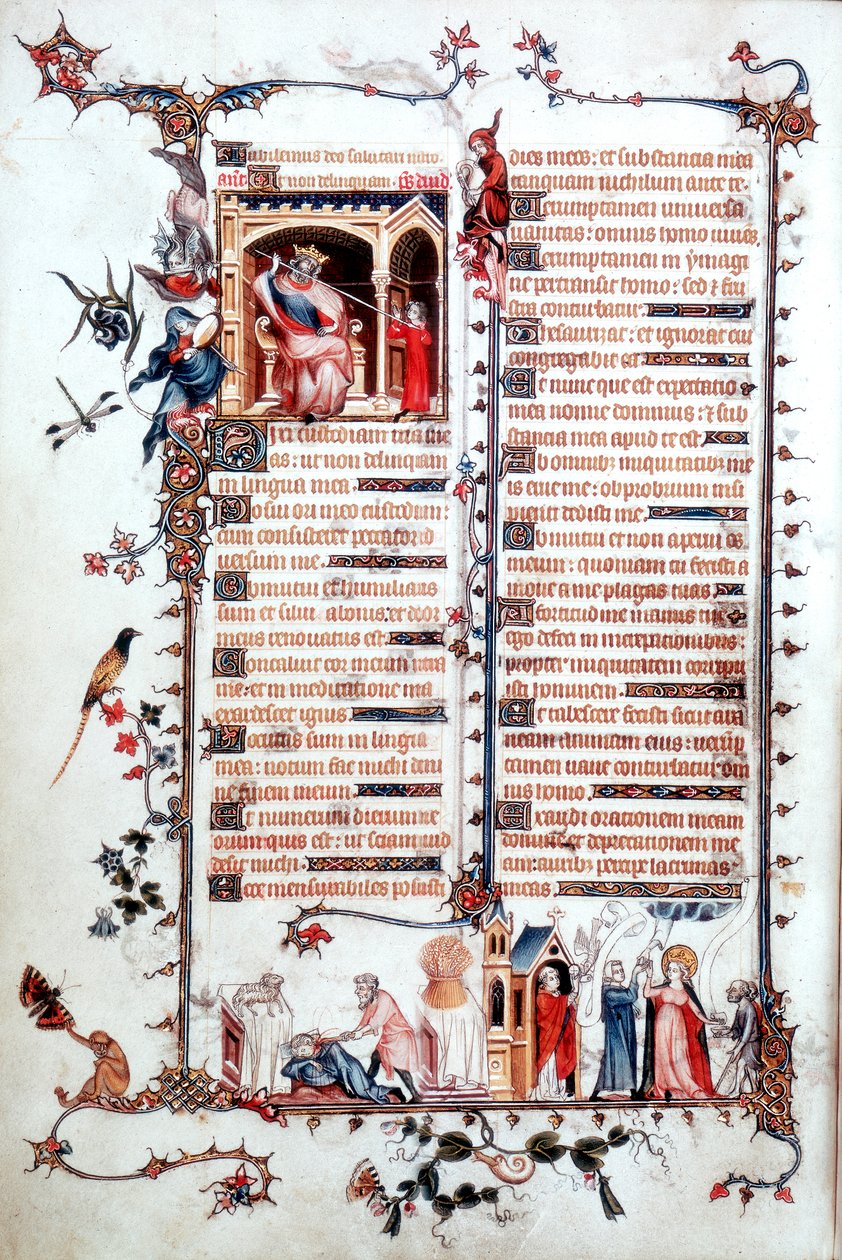 Jubilemus deo salutari nr̄o.
Ant̄. Ut non delinquam. p̄s dauid.
Dixi custodiam uias me
as: ut non delinquam
in lingua mea.
Posui ori meo custodiam:
cum consisteret peccator ad
uersum me.
Obmutui et humiliatus
sum et silui a bonis: et dolor
meus renouatus est.
Concaluit cor meum intra
me: et in meditatione mea
exardescet ignis.
Locutus sum in lingua
mea: notum fac michi domi
ne finem meum.
Et numerum dierum me
orum quis est: ut sciam quid
desit michi.
Ecce mensurabiles posuisti
dies meos: et substancia mea
tanquam nichilum ante te.
Uerumptamen uniuersa
uanitas: omnis homo uiuens.
Uerumptamen in ymagi
ne pertransit homo: sed et frus
tra conturbatur.
Thesaurizat: et ignorat cui
congregabit ea.
Et nunc que est expectatio
mea nonne dominus: et sub
stancia mea apud te est.
Ab omnibꝫ iniquitatibꝫ me
is erue me: obprobrium insi
pienti dedisti me.
Obmutui et non aperui os
meum: quoniam tu fecisti a
moue a me plagas tuas.
A fortitudine manus tue
ego defeci in increpationibus:
propter iniquitatem corripu
isti hominem.
Et tabescere fecisti sicut ara
neam animam eius: uerūp
tamen uane conturbatur om
nis homo.
Exaudi orationem meam
domine et deprecationem me
am: auribꝫ percipe lacrimas
meas